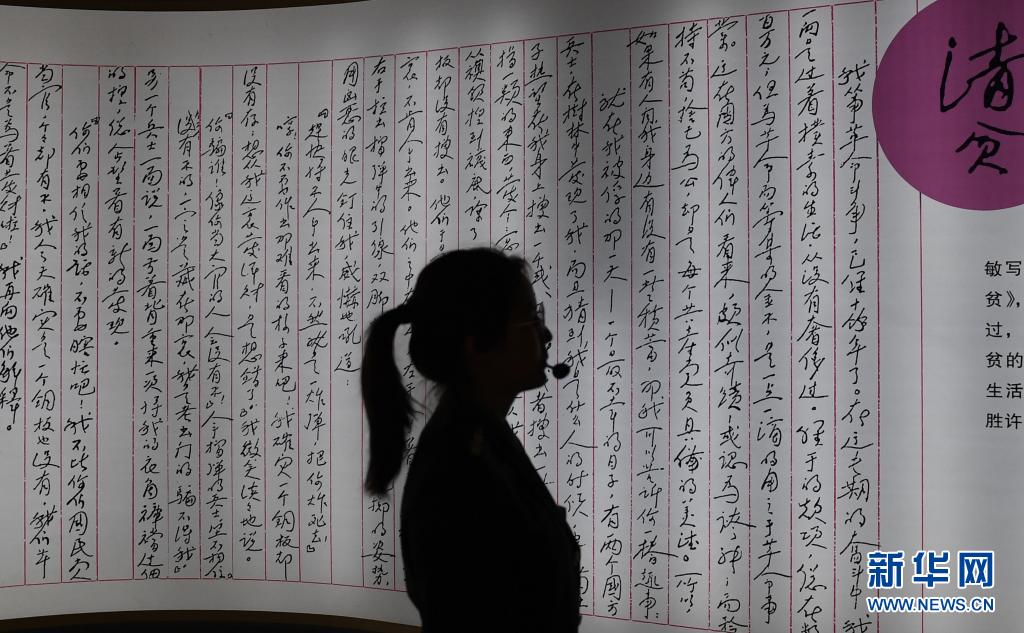 清贫
我从事革命斗争，已经十余年了。在这长期的奋斗中，我
一向是过着朴素的生活，从没有奢侈过。经手的款项，总在数
百万元；但为革命而筹集的金钱，是一点一滴的用之于革命事
业。这在国方的伟人们看来，颇似奇迹，或认为夸张；而矜
持不苟，舍己为公，却是每个共产党员具备的美德。所以
如果有人问我身边有没有一些积蓄，那我可以告诉你一桩趣事：
就在我被俘的那一天——一个最不幸的日子，有两个国方
兵士，在树林中发现了我，而且猜到我是什么人的时候，
子热望在我身上搜出一千或 者搜出一
指一类的东西，发个意
从袄领捏到袜底，除了
板都没有搜出。他们于
里，不肯拿出来。他们之中 左手 着
右手拉出榴弹中的引线，双脚 掷的姿势，
用凶恶的眼光钉住我，威吓地吼道：
“赶快将钱拿出来，不然就是一炸弹，把你炸死去！”
“哼！你不要作出那难看的样子来吧！我确实一个铜板都
没有存；想从我这里发洋财，是想错了。”我微笑淡淡地说。
“你骗谁！像你当大官的人会没有钱！”拿榴弹的兵士坚不相信。
没有钱的，一定是藏在那里，我是老出门的，骗不得我。”
另一个兵士一面说，一面弓着背重来一次将我的衣角裤裆过细
的捏，总企望着有新的发现。
“你们要相信我的话，不要瞎忙吧！我不比你们国民党
当官，个个都有钱，我今天确实是一个铜板也没有，我们革
命不是为着发财啦！”我再向他们解释。
敏写
贫》，
过，
贫的
生活
胜许
新华网
WWW.NEWS.CN